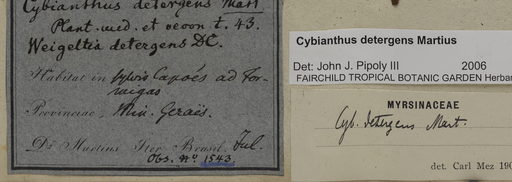 Cybianthus detergens Mart
Plant. med. et oecon t. 43.
Weigeltia detergens DC.
Habitat in sylvis Capoës ad For-
migas
Provinciae, Min. Geraës.
Dr. Martius Iter Brasil. Jul.
Obs. No 1543.
Cybianthus detergens Martius
Det: John J. Pipoly III 2006
FAIRCHILD TROPICAL BOTANIC GARDEN Herbar
MYRSINACEAE
Cyb. detergens Mart.
det. Carl Mez 190